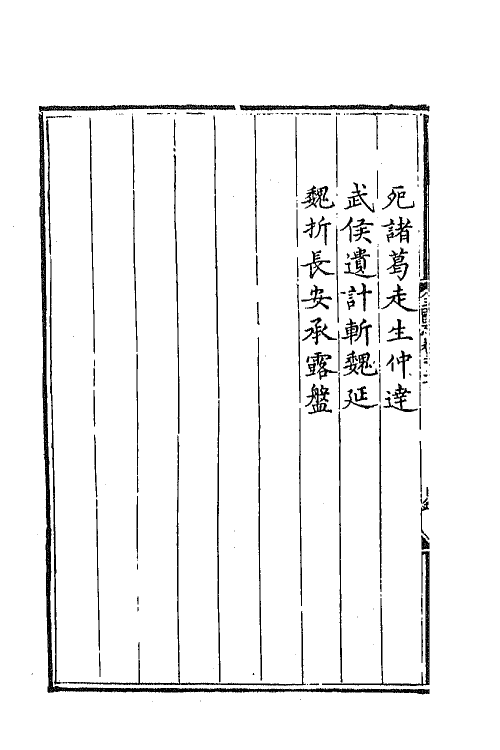 死諸葛走生仲達
武侯遺計斬魏延
魏折長安承露盤